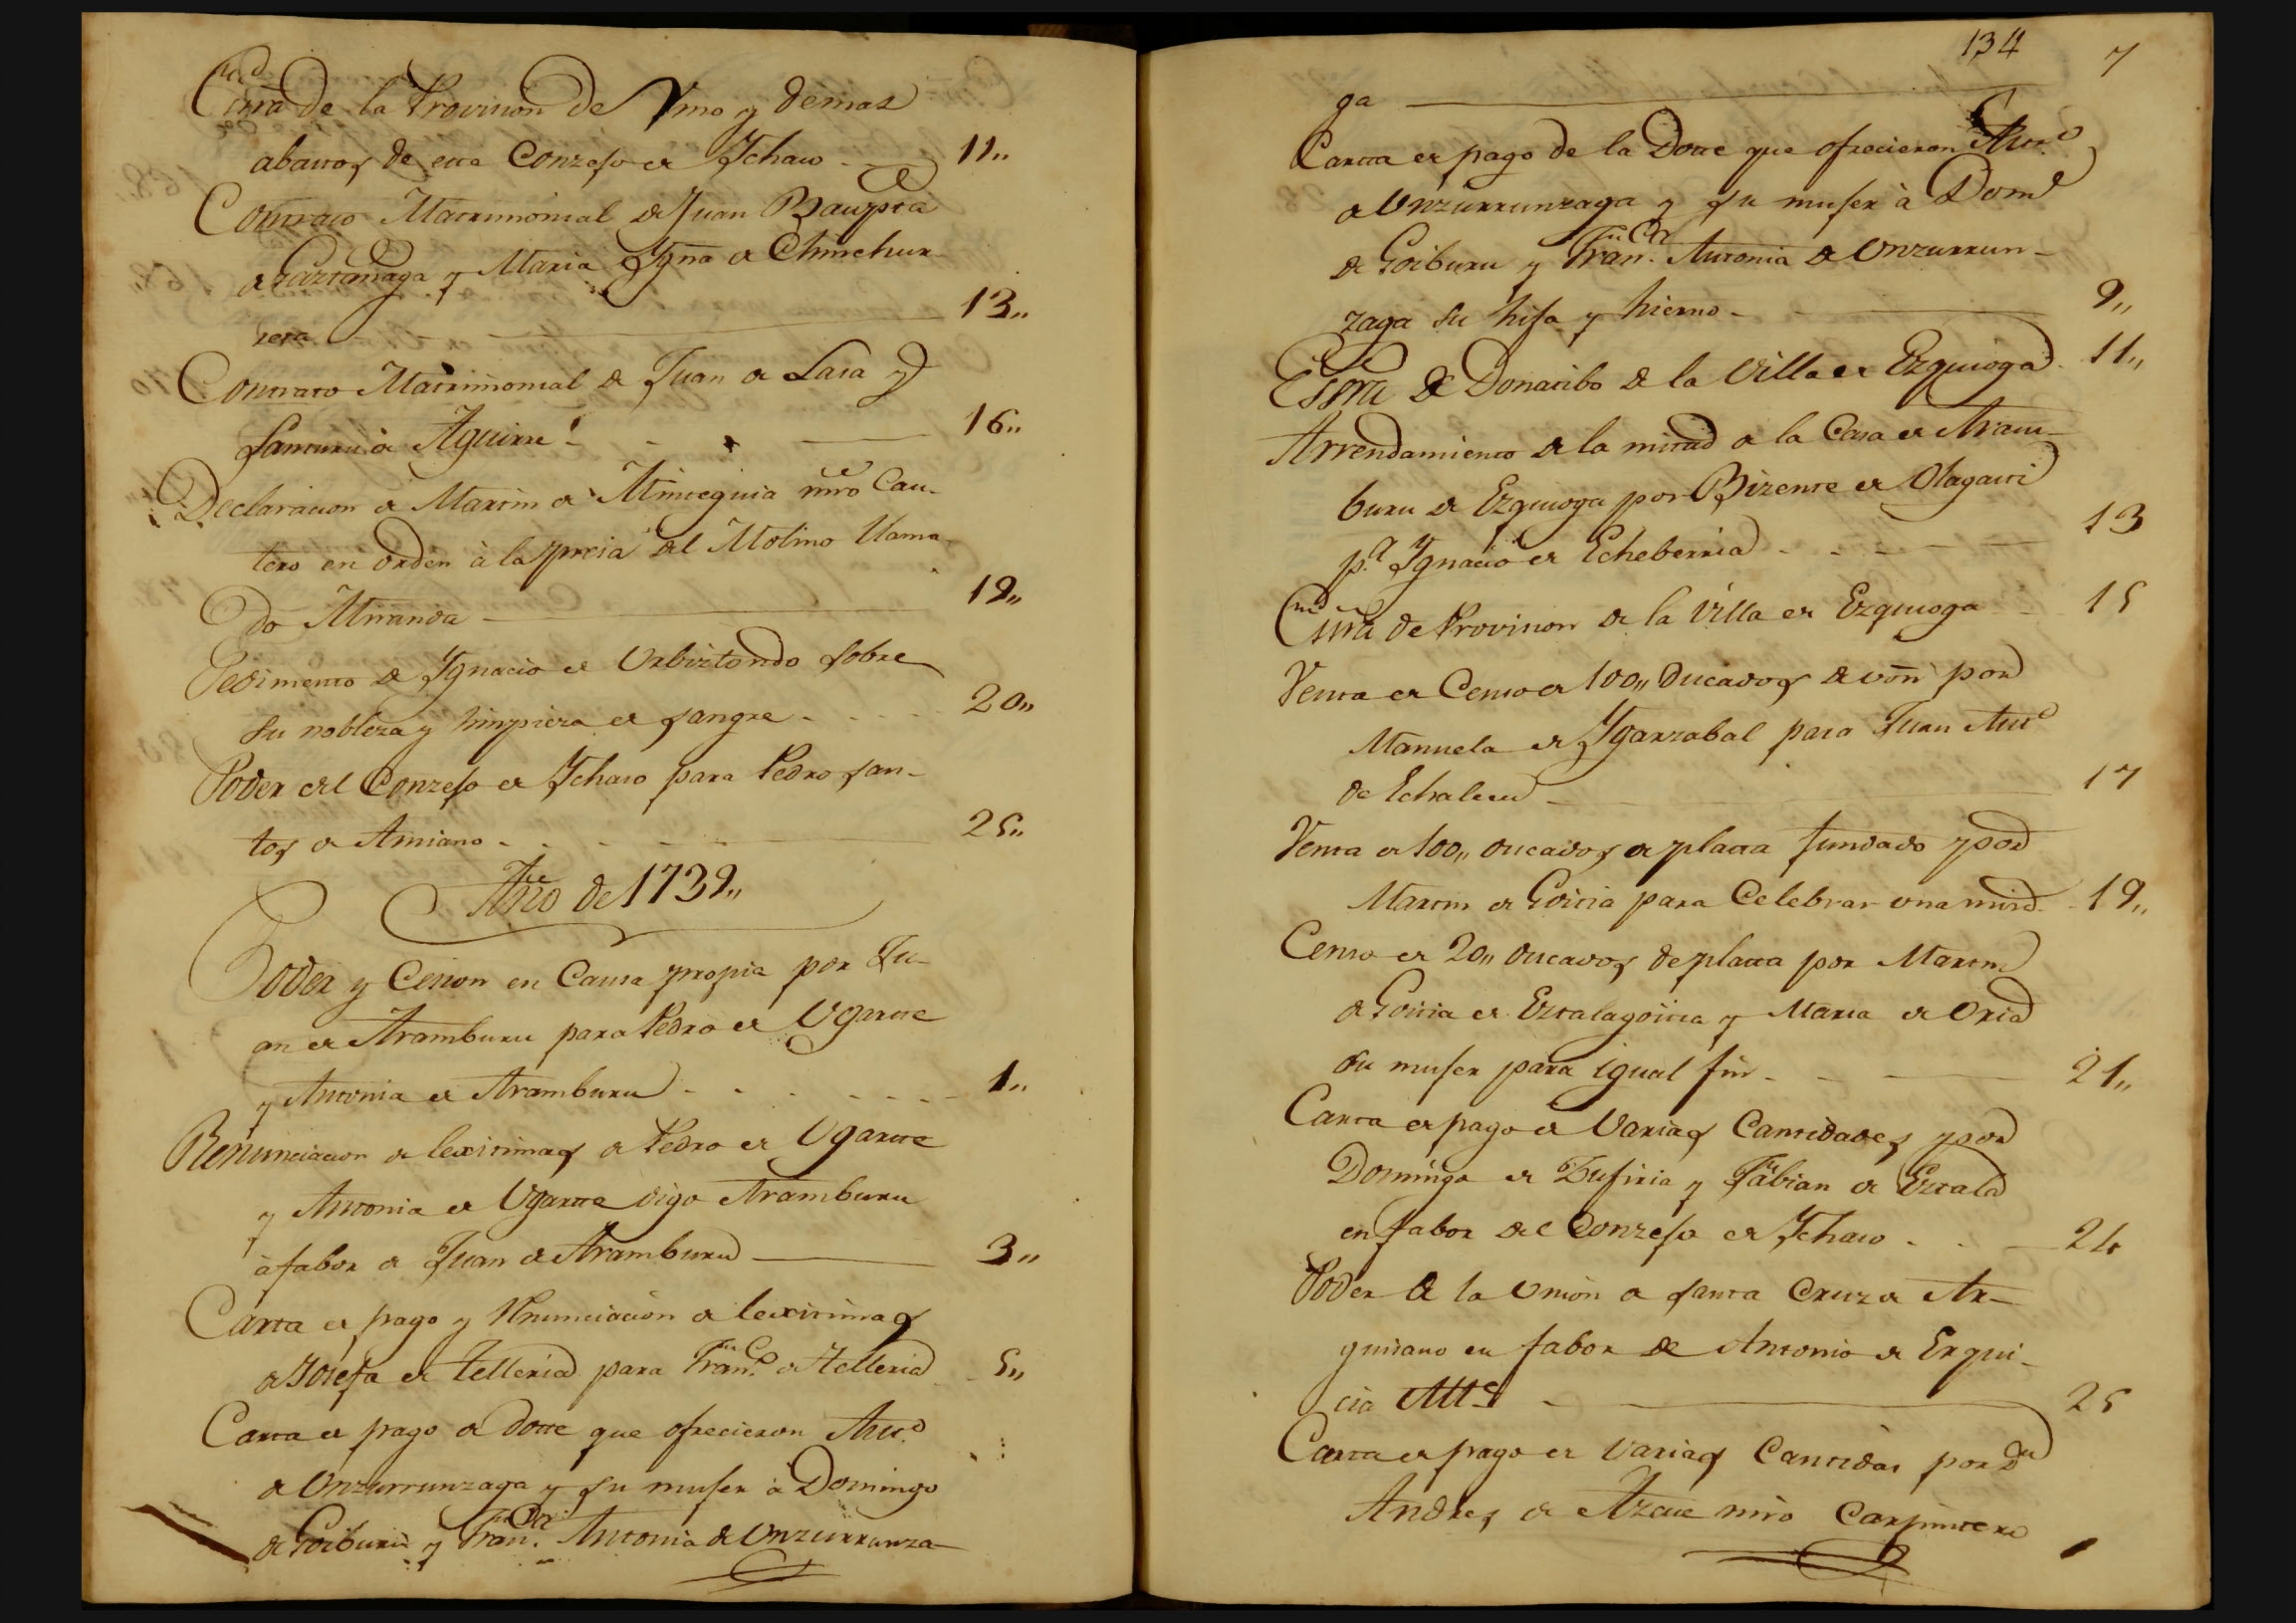 Essra de la Provision de Vino y demas
abastos de este Conzejo de Ychaso - 11,,
Contrato Matrimonial de Juan Baupta
de Gaztanaga y Maria Ygna de Chinchur-
reta - 13,,
Contrato Matrimonial de Juan de Lasa y
Santuru de Aguirre - 16,,
Declaracion de Martin de Minteguia mro Can-
tero en orden à la presa del Molino llama-
do Miranda - 19,,
Pedimento de Ygnacio de Urbiztondo sobre
su nobleza y limpieza de sangre - 20,,
Poder del Conzejo de Ychaso para Pedro San-
tos de Amiano - 25,,
Año de 1739,,
Poder y Cesion en Causa propia por Ju-
an de Aramburu para Pedro de Ugarte
y Antonia de Aramburu - 1,,
Renunciacion de lexitimas de Pedro de Ugarte
y Antonia de Ugarte digo Aramburu
à fabor de Juan de Aramburu - 3,,
Carta de pago y Renunciacion de lexitimas
de Josefa de Telleria para Franco de Telleria - 5,,
Carta de pago de dotte que ofrecieron Anto
de Unzurrunzaga y su muger à Domingo
de Goiburu y Franca Antonia de Unzurrunza-
134 7
ga
Cartta de pago de la Dotte que ofrecieron Anto
de Unzurrunzaga y su muger à Domo
de Goiburu y Franca Antonia de Unzurrun-
zaga su hija y hierno - 9,,
Essra de Donatibo de la Villa de Ezquioga - 11,,
Arrendamiento de la mitad de la Casa de Aram-
buru de Ezquioga por Bizente de Olagaiti
pa Ygnacio de Echeberria - 13
Essra de Provision de la Villa de Ezquioga - 15
Venta de Censo de 100,, Ducados de von por
Manuela de Ygarzabal para Juan Anto
de Echalecu - 17
Venta de 100,, ducados de platta fundado por
Martin de Goitia para Celebrar una misa - 19,,
Censo de 20,, ducados de platta por Martin
de Goitia de Eztalagoitia y Maria de Oria
su muger para igual fin - 21,,
Carta de pago de Varias Cantidades por
Domingo de Tufiria y Fabian de Eztala
en fabor del Conzejo de Ychaso - 24
Poder de la Union de Santa Cruz de Ar-
guisano en fabor de Antonio de Ergui-
cia - 25
Carta de pago de Varias Cantidas por
Andres de Azcue mro Carpintero